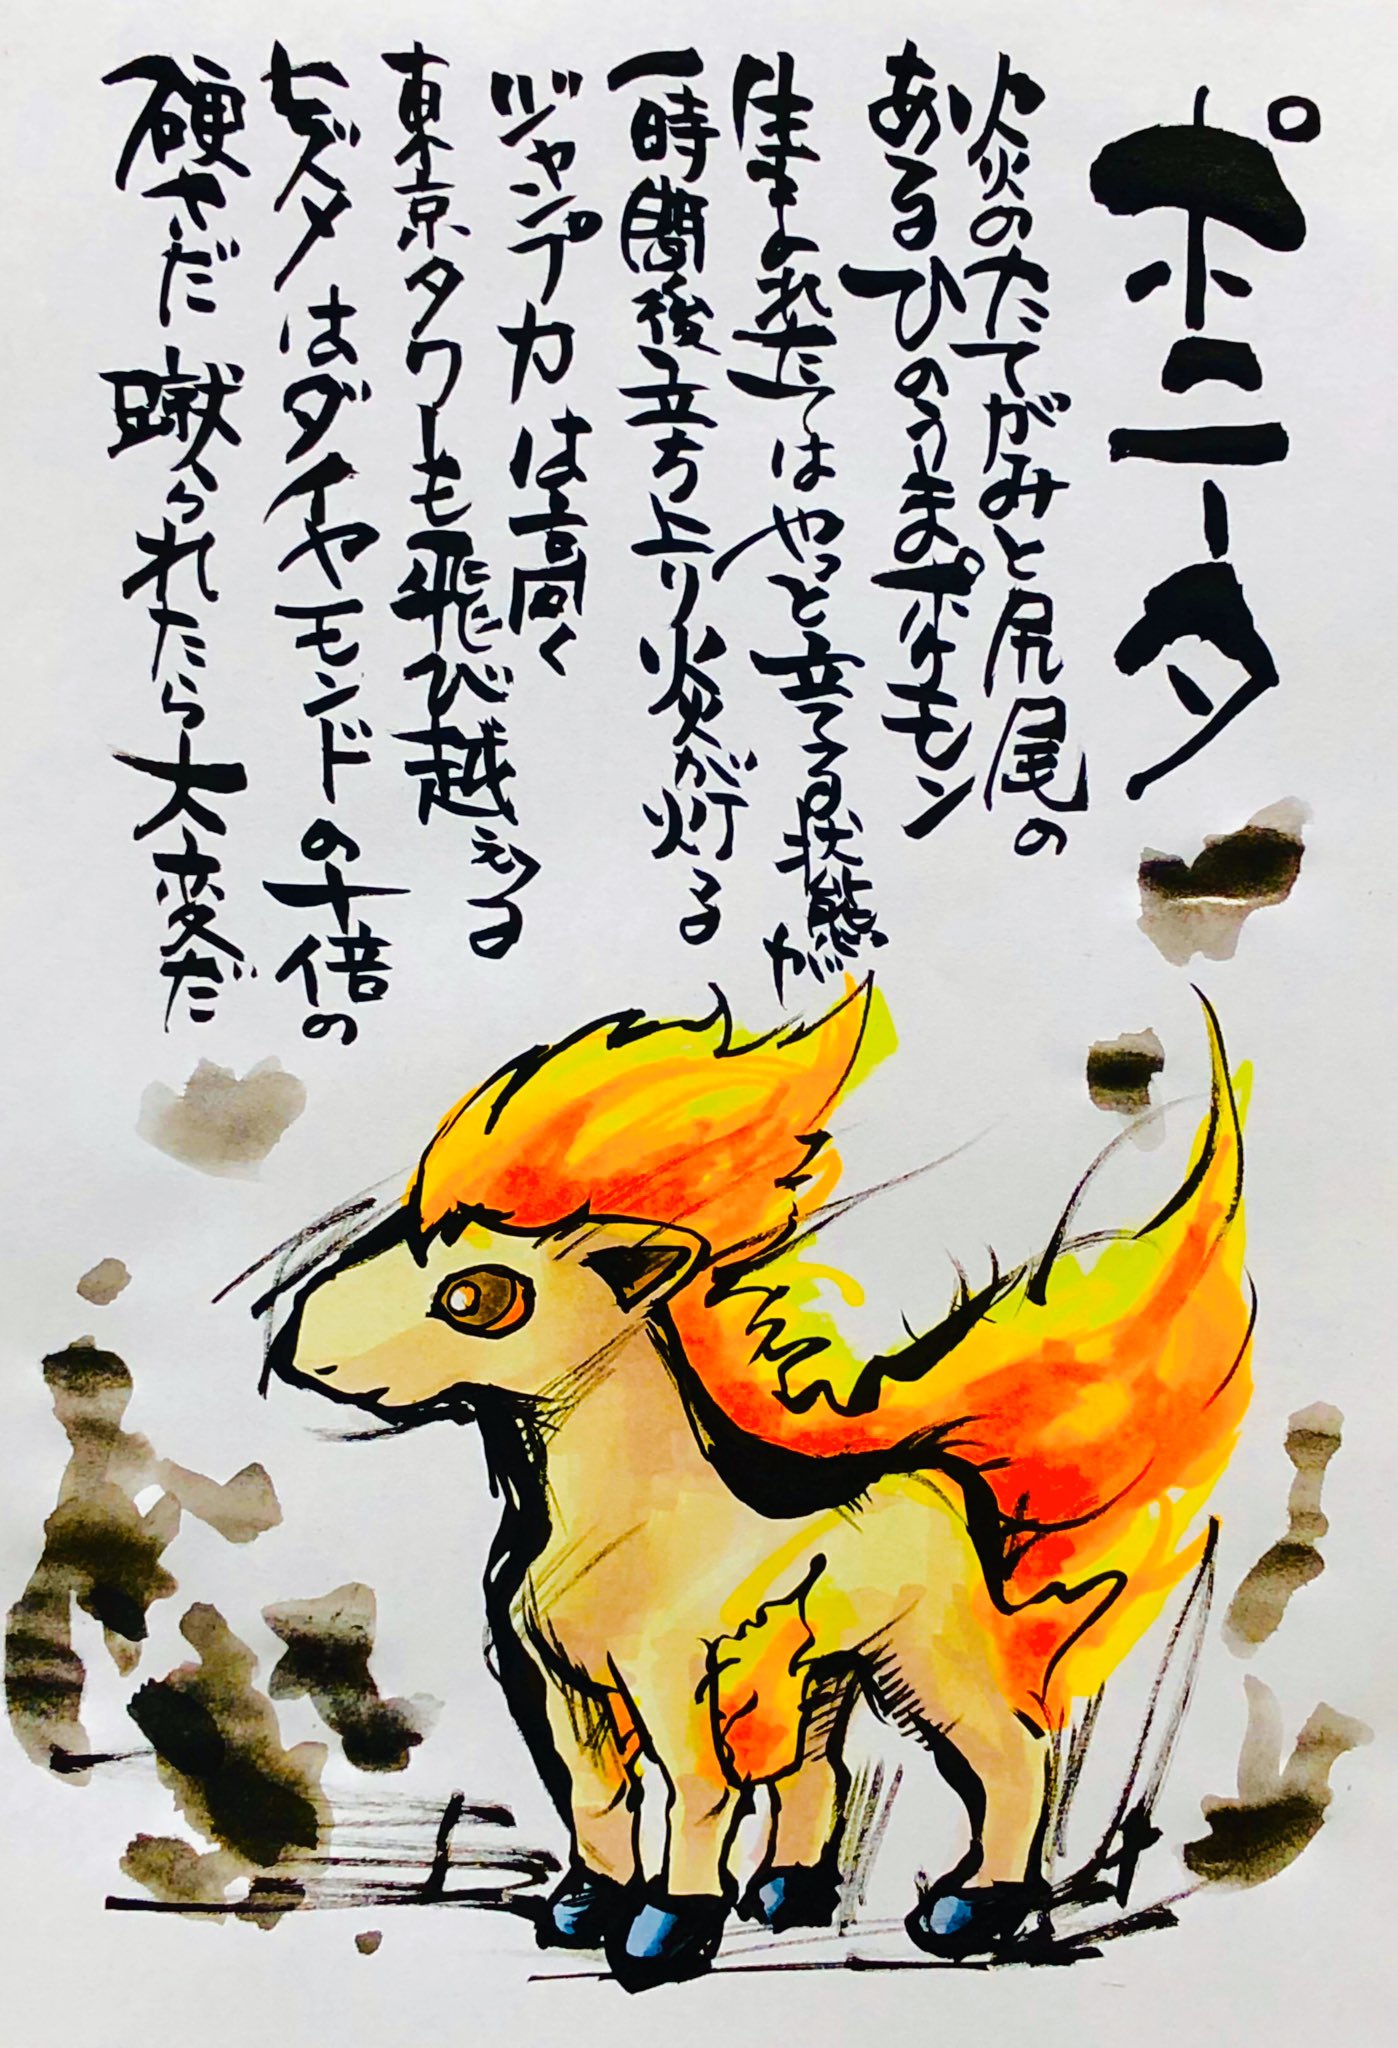 ポニータ
炎のたてがみと尻尾の
あるひのうまポケモン
生まれたてはやっと立てる状態が
一時間後立ち上り炎が灯る
ジャンプ力は高く
東京タワーも飛び越える
ヒズメはダイヤモンドの十倍の
硬さだ 蹴られたら大変だ